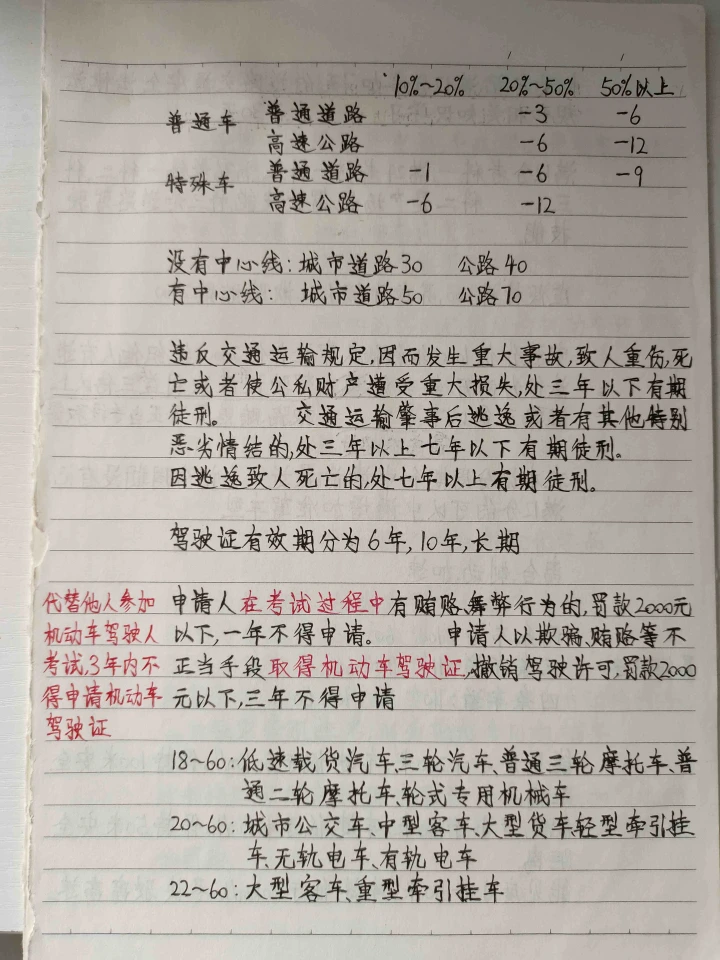 10%~20% 20%~50% 50%以上
普通车 普通道路 -3 -6
高速公路 -6 -12
特殊车 普通道路 -1 -6 -9
高速公路 -6 -12
没有中心线:城市道路30 公路40
有中心线: 城市道路50 公路70
违反交通运输规定,因而发生重大事故,致人重伤,死
亡或者使公私财产遭受重大损失,处三年以下有期
徒刑。 交通运输肇事后逃逸或者有其他特别
恶劣情结的,处三年以上七年以下有期徒刑。
因逃逸致人死亡的,处七年以上有期徒刑。
驾驶证有效期分为6年,10年,长期
代替他人参加
机动车驾驶人
考试,3年内不
得申请机动车
驾驶证
申请人在考试过程中有贿赂、舞弊行为的,罚款2000元
以下,一年不得申请。 申请人以欺骗、贿赂等不
正当手段取得机动车驾驶证,撤销驾驶许可,罚款2000
元以下,三年不得申请
18~60:低速载货汽车、三轮汽车、普通三轮摩托车、普
通二轮摩托车、轮式专用机械车
20~60:城市公交车、中型客车、大型货车、轻型牵引挂
车、无轨电车、有轨电车
22~60:大型客车、重型牵引挂车